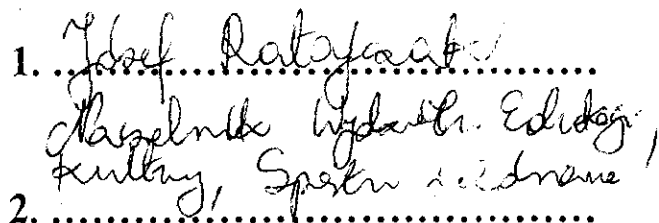 1. Józef Ratajczak
Naczelnik Wydziału Edukacji,
Kultury, Sportu i Zdrowia
2.